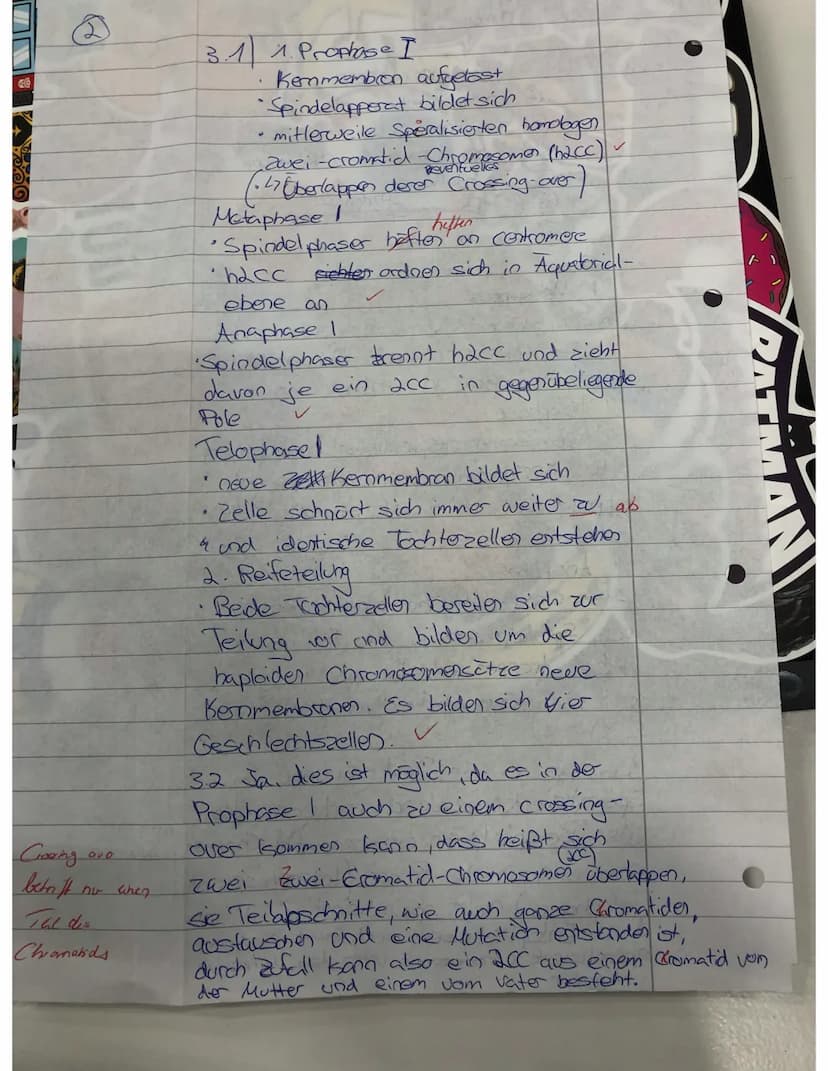 2
3.1) 1. Prophase I
· Kernmembran aufgelöst
· Spindelapperat bildet sich
· mitlerweile Speralisierten homologen
zwei-cromatid-Chromosomen (h2CC) ✓
eventuelles
(↳ Überlappen derer Crossing-over)
Metaphase I
heften
· Spindelphaser häften an centromere
· h2CC ordnen sich in Äquatorial-
ebene an ✓
Anaphase I
· Spindelphaser trennt h2CC und zieht
davon je ein 2CC in gegenübeliegende
Pole ✓
Telophase I
· neue Kernmembran bildet sich
· Zelle schnürt sich immer weiter zu ab
und identische Tochterzellen entstehen
2. Reifeteilung
· Beide Tochterzellen bereiten sich zur
Teilung vor und bilden um die
haploiden Chromosomensätze neue
Kernmembranen. Es bilden sich vier
Geschlechtszellen. ✓
3.2 Ja, dies ist möglich, da es in der
Prophase I auch zu einem crossing-
over kommen kann, dass heißt sich
(2CC)
zwei Zwei-Cromatid-Chromosomen überlappen,
sie Teilabschnitte, wie auch ganze Chromatiden,
austauschen und eine Mutation entstanden ist,
durch Zufall kann also ein 2CC aus einem Cromatid von
der Mutter und einem vom Vater besteht.
Crossing over
betrifft nur einen
Teil des
Chromatids
BATMAN